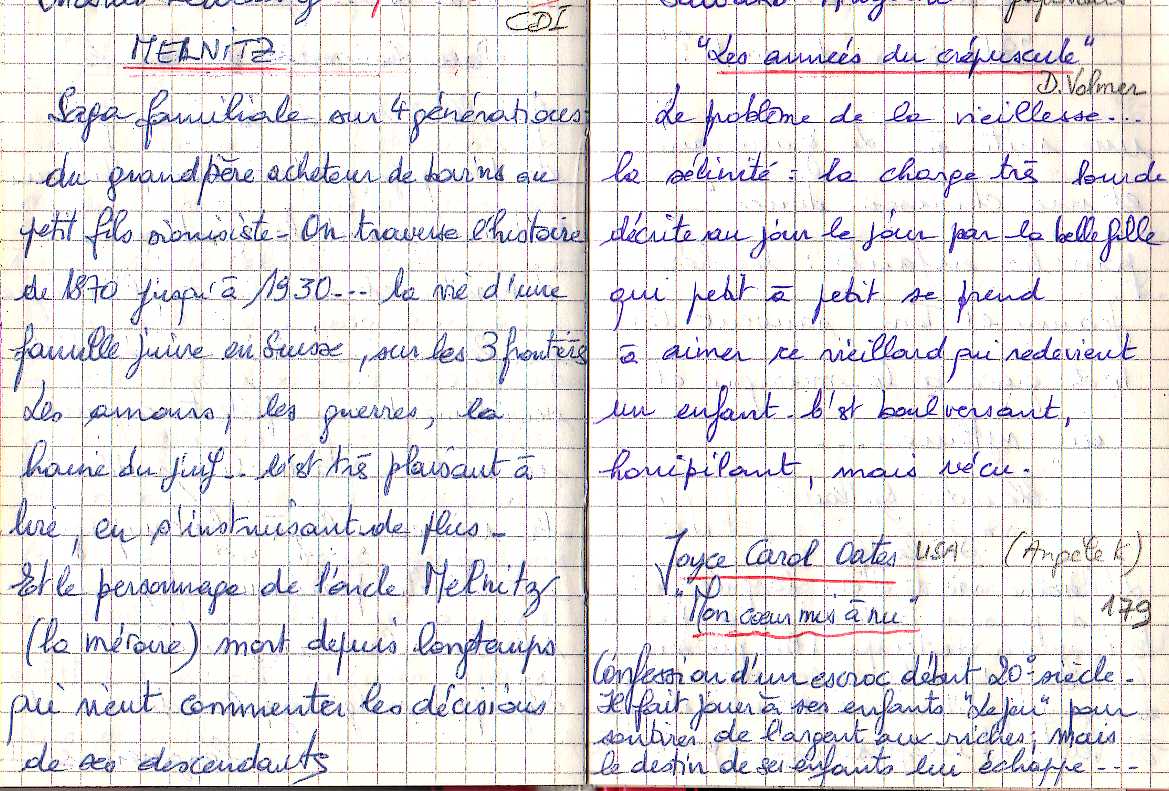 CDI
MELNITZ
Saga familiale sur 4 générations
du grand père acheteur de bovins au
petit fils sionisiste - On traverse l'histoire
de 1870 jusqu'à 1930--- la vie d'une
famille juive en Suisse, sur les 3 frontières
Les amours, les guerres, la
haine du juif - C'est très plaisant à
lire, en s'instruisant de plus -
Et le personnage de l'oncle Melnitz
(la mémoire) mort depuis longtemps
qui vient commenter les décisions
de ses descendants
"Les années du crépuscule"
D. Volmer
Le problème de la vieillesse....
la sélinité : la charge très lourde
décrite au jour le jour par la belle fille
qui petit à petit se prend
à aimer ce vieillard qui redevient
un enfant - C'est boulversant,
horripilant, mais vécu.
Joyce Carol Oates USA
"Mon cœur mis à nu"
179
Confession d'un escroc début 20° siècle -
Il fait jouer à ses enfants "Le jeu" pour
soutirer de l'argent aux riches; mais
le destin de ses enfants lui échappe ---